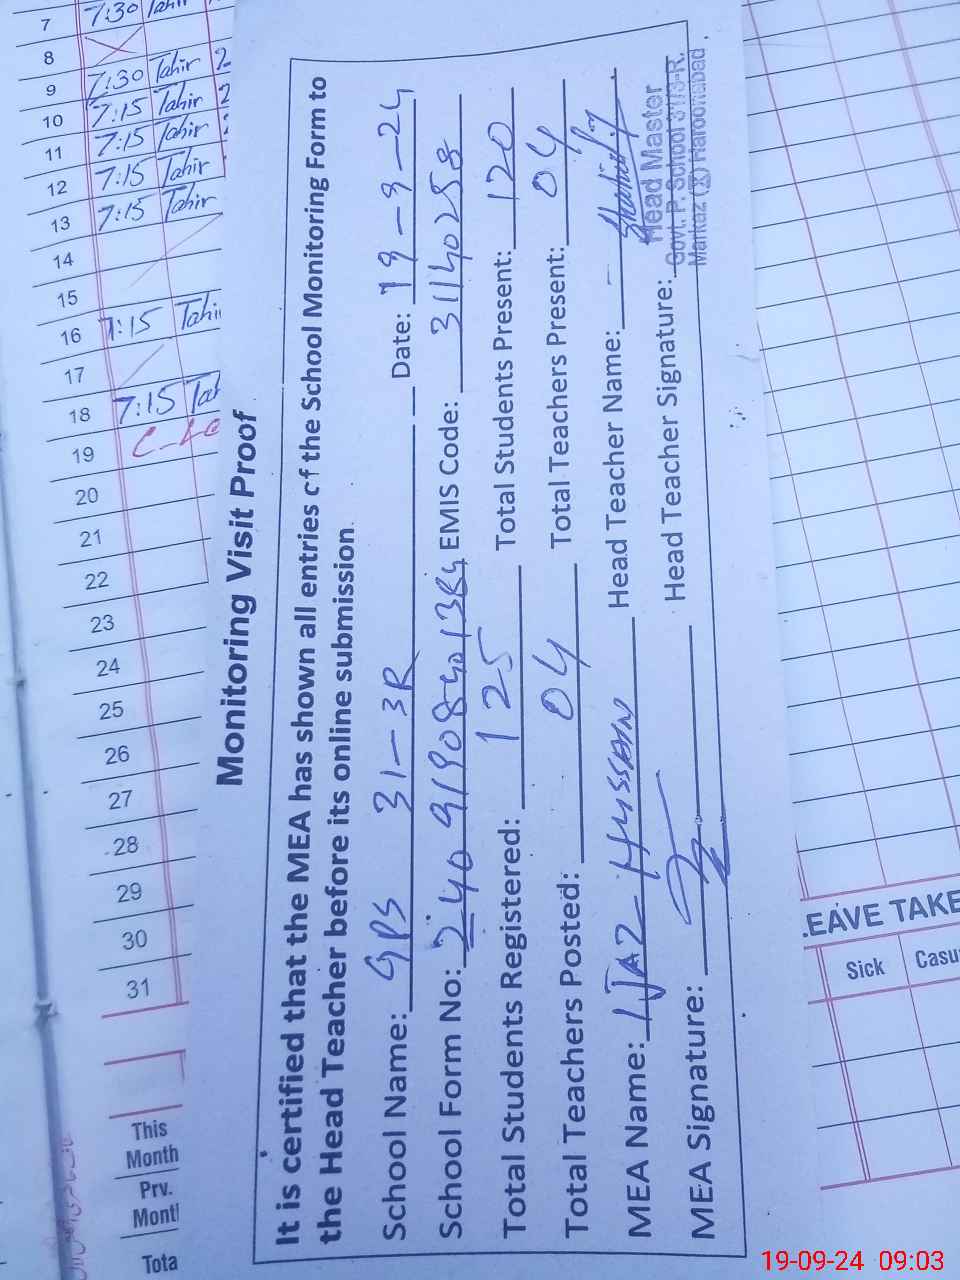 7 7:30 Tahir
8
9 7:30 Tahir 2
10 7:15 Tahir 2
11 7:15 Tahir
12 7:15 Tahir
13 7:15 Tahir
14
15
16 7:15 Tahir
17
18 7:15 Tah
19 C-Le
20
21
22
23
24
25
26
27
28
29
30
31
This Month
Prv. Month
Tota
Monitoring Visit Proof
It is certified that the MEA has shown all entries of the School Monitoring Form to
the Head Teacher before its online submission.
School Name: GPS 31-3R Date: 19-9-24
School Form No: 24091908401384 EMIS Code: 31140258
Total Students Registered: 125 Total Students Present: 120
Total Teachers Posted: 04 Total Teachers Present: 04
MEA Name: IJAZ HUSSAIN Head Teacher Name:
MEA Signature: Head Teacher Signature:
Head Master
Govt. P. School 31/3-R.
Markaz (X) Haroonabad.
LEAVE TAKE
Sick Casu
19-09-24 09:03